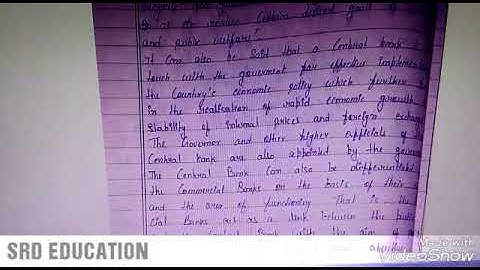 so as to realise certain desired goals of
and public welfare.
It can also be said that a Central bank is
touch with the government for effective implemen
the Country's economic policy which further
in the realisation of rapid economic growth
stability of internal prices and foreign exchange
The Governor and other higher officials of the
Central bank are also appointed by the governm
The Central Bank can also be differentiated
the Commercial Banks on the basis of their
and the area of functioning. That is the
cial Banks act as a link between the public
Central Bank with the aim of
SRD EDUCATION
Made with
VideoShow